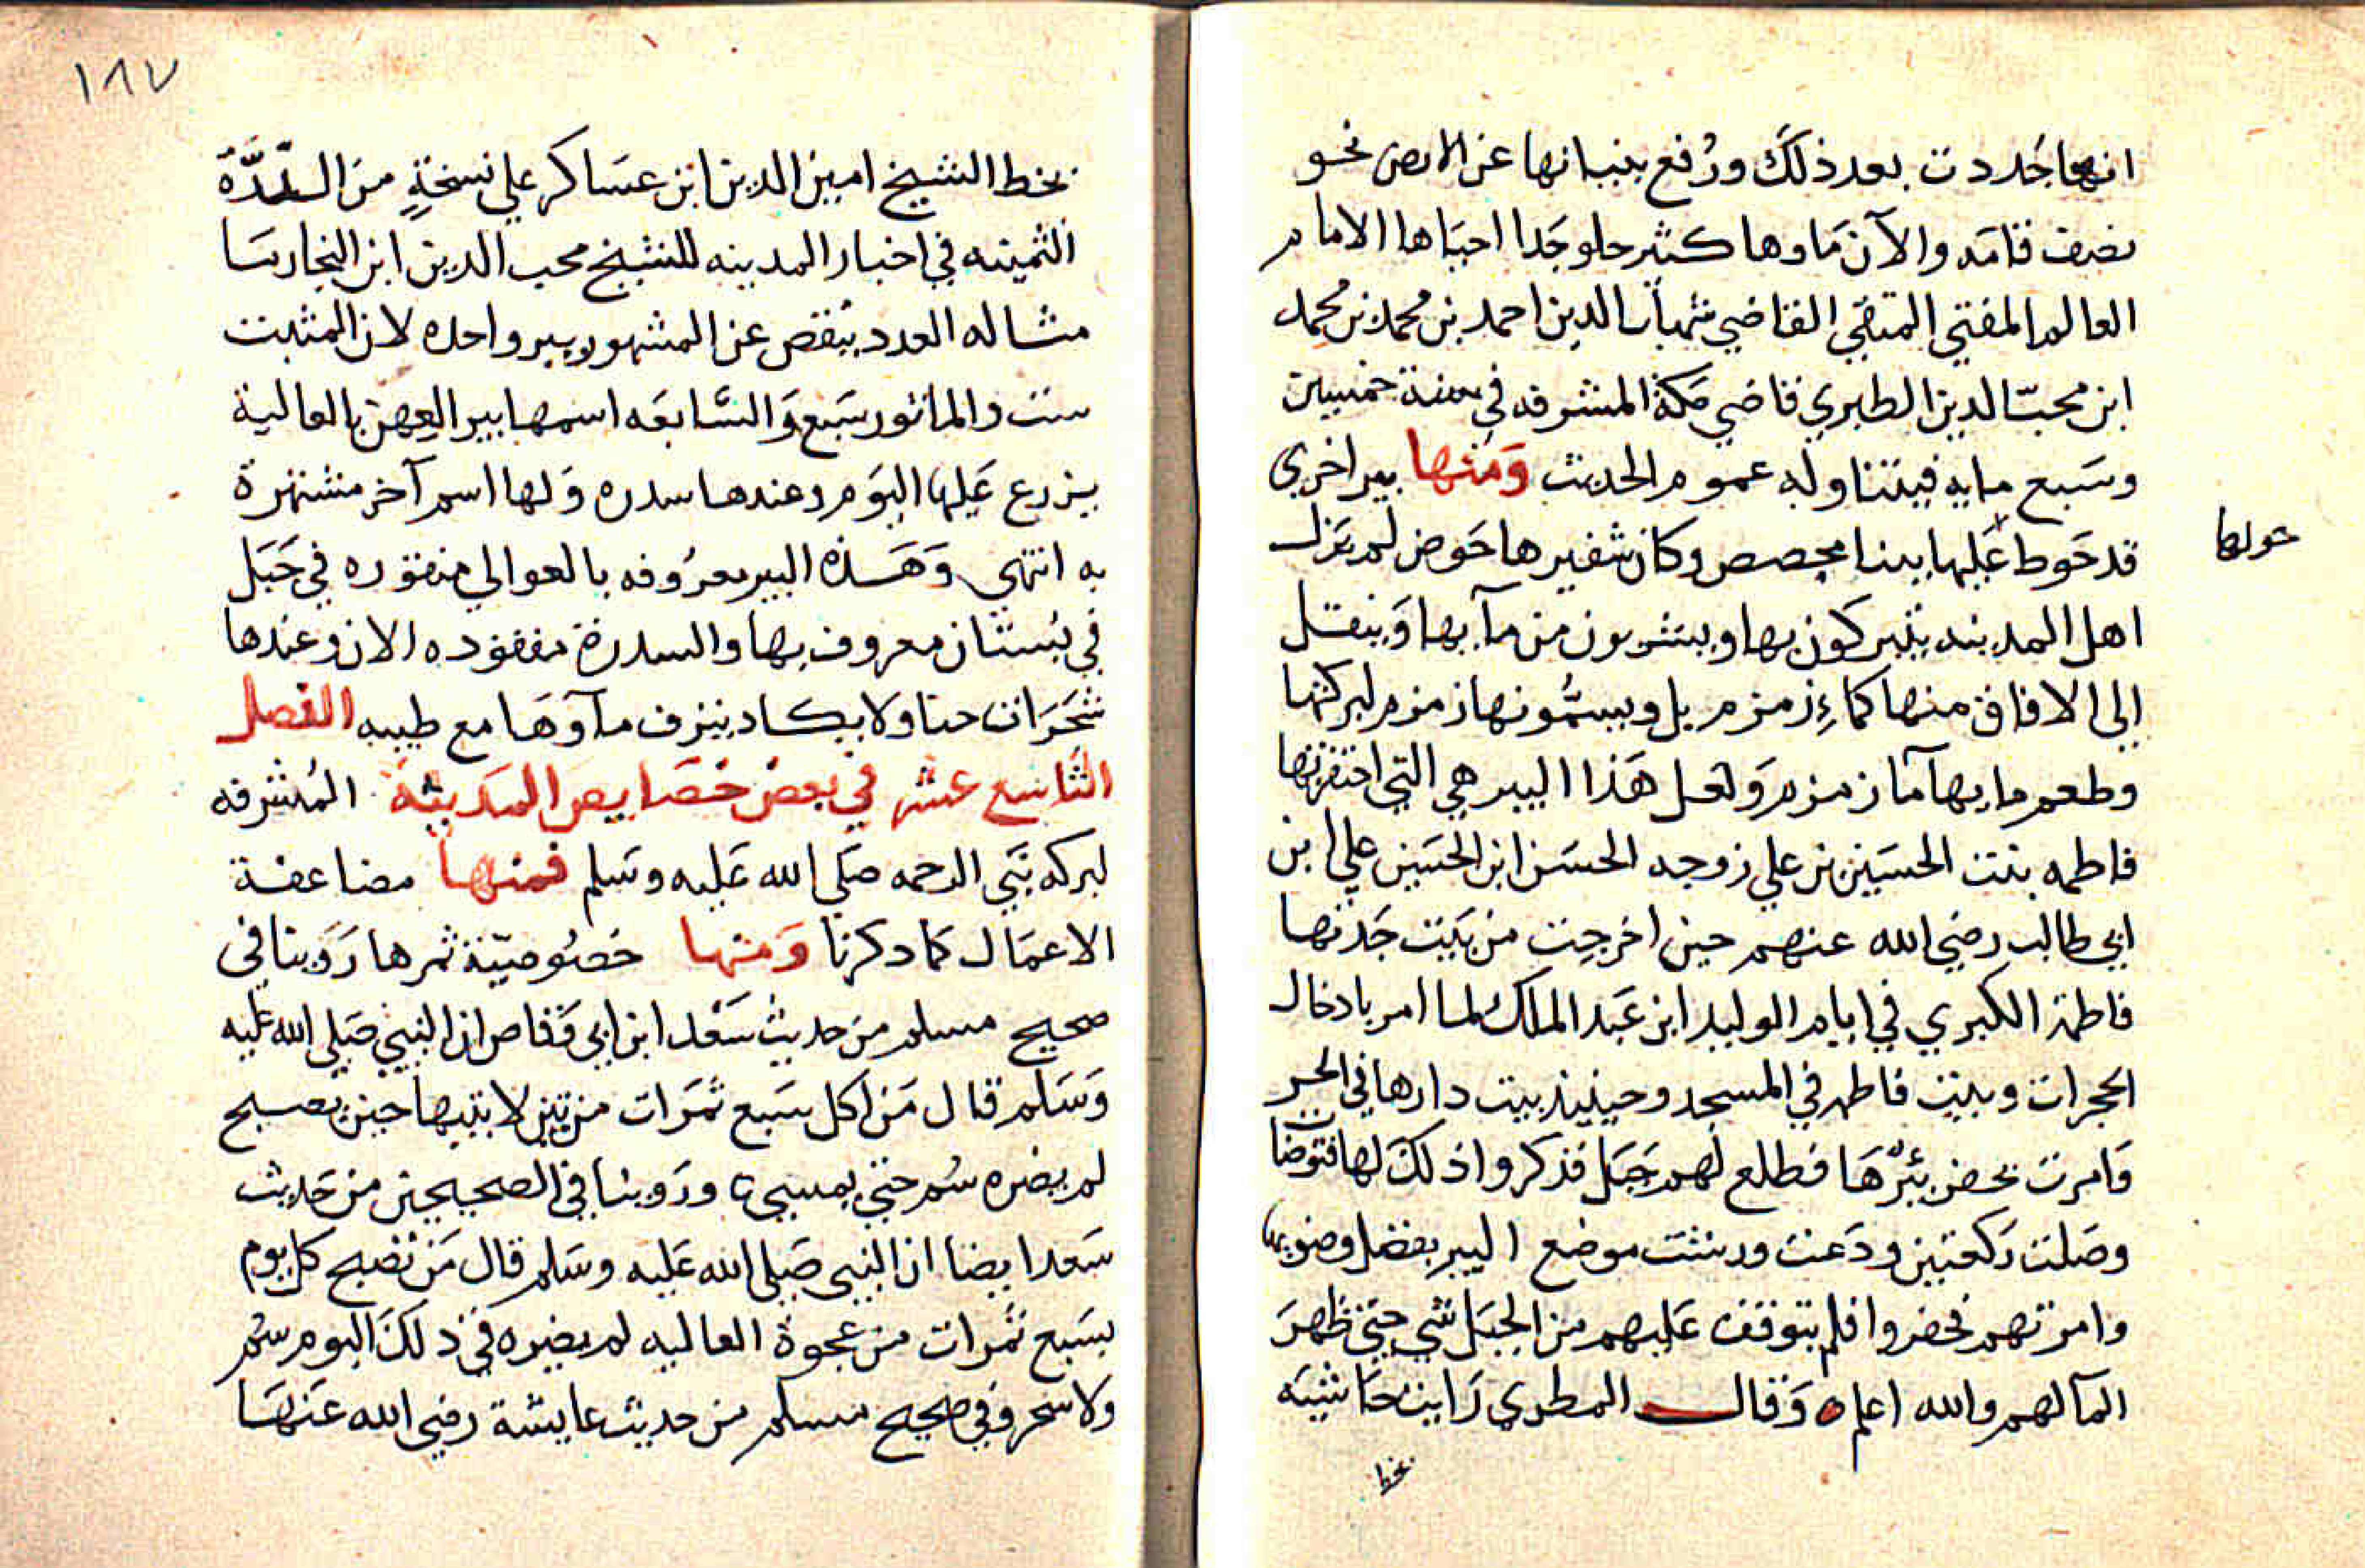 انها جددت بعد ذلك ورُفع بنيانها عن الارض نحو
نصف قامه والآن ماوها كثير حلو جدا احياها الامام
العالم المفتي المتقي القاضي شهاب الدين احمد بن محمد بن محمد
ابن محبّ الدين الطبري قاضي مكة المشرفه في سنة خمسين
وسبع مايه فيتناوله عموم الحديث ومنها بير اخري
قد حوط عليها ببنا مجصص وكان شفيرها حوض لم تزل
حولها
اهل المدينه يتبركون بها ويشربون من مآيها وينقل
الي الافاق منها كماءِ زمزم بل ويسمُّونها زمزم لبركتها
وطعم مايها مآ زمزم ولعل هذا البير هي التي احتفرتها
فاطمه بنت الحسين بن علي زوجه الحسن ابن الحسين علي ابن
ابي طالب رضي الله عنهم حين اخرجت من بيت جدتها
فاطمة الكبري في ايام الوليد ابن عبد الملك لما امر بادخال
الحجرات وبيت فاطمه في المسجد وحينيذ بنت دارها في الحر
وامرت بحفر بئرها فطلع لهم جبل فذكروا ذلك لها فتوضات
وصلت ركعتين ودعت ورشت موضع البير بفضل وضويها
وامرتهم فحفروا فلم يتوقف عليهم من الجبل شي حتي ظهر
المآ لهم والله اعلم ه وقال المطري رايت حاشيه
بخط
١٨٧
بخط الشيخ امين الدين ابن عساكر علي نسخةٍ من الدرّة
الثمينه في اخبار المدينه للشيخ محب الدين ابن النجار سا
مثاله العدد ينقص عن المشهور بير واحده لان المثبت
ست والماثور سبع والسّابعه اسمها بير العِهن بالعالية
يزرع عليها اليوم وعندها سدره ولها اسم آخر مشتهرة
به انتهي وهذه البير معرُوفه بالعوالي منقوره في جبل
في بُستان معروف بها والسدرة مفقوده الان وعندها
شجرات حنا ولا يكاد ينزف مآوها مع طيبه الفصل
التاسع عشر في بعض خصايص المدينة المُشرفه
لبركه نبي الرحمه صلي الله عليه وسلم فمنها مضاعفة
الاعمال كما دكرنا ومنها خصُوصيّة ثمرها روينا في
صحيح مسلم من حديث سعد ابن ابي وقاص ان النبي صلي الله عليه
وسلم قال من اكل سبع تمرات من بين لابتيها حين يصبح
لم يضره سُم حتي يمسي ه وروينا في الصحيحين من حديث
سعد ايضا ان النبي صلي الله عليه وسلم قال من تصبح كل يوم
بسبع تمرات من عجوة العاليه لم يضره في ذلك اليوم سُم
ولا سحر وفي صحيح مسلم من حديث عايشة رضي الله عنها